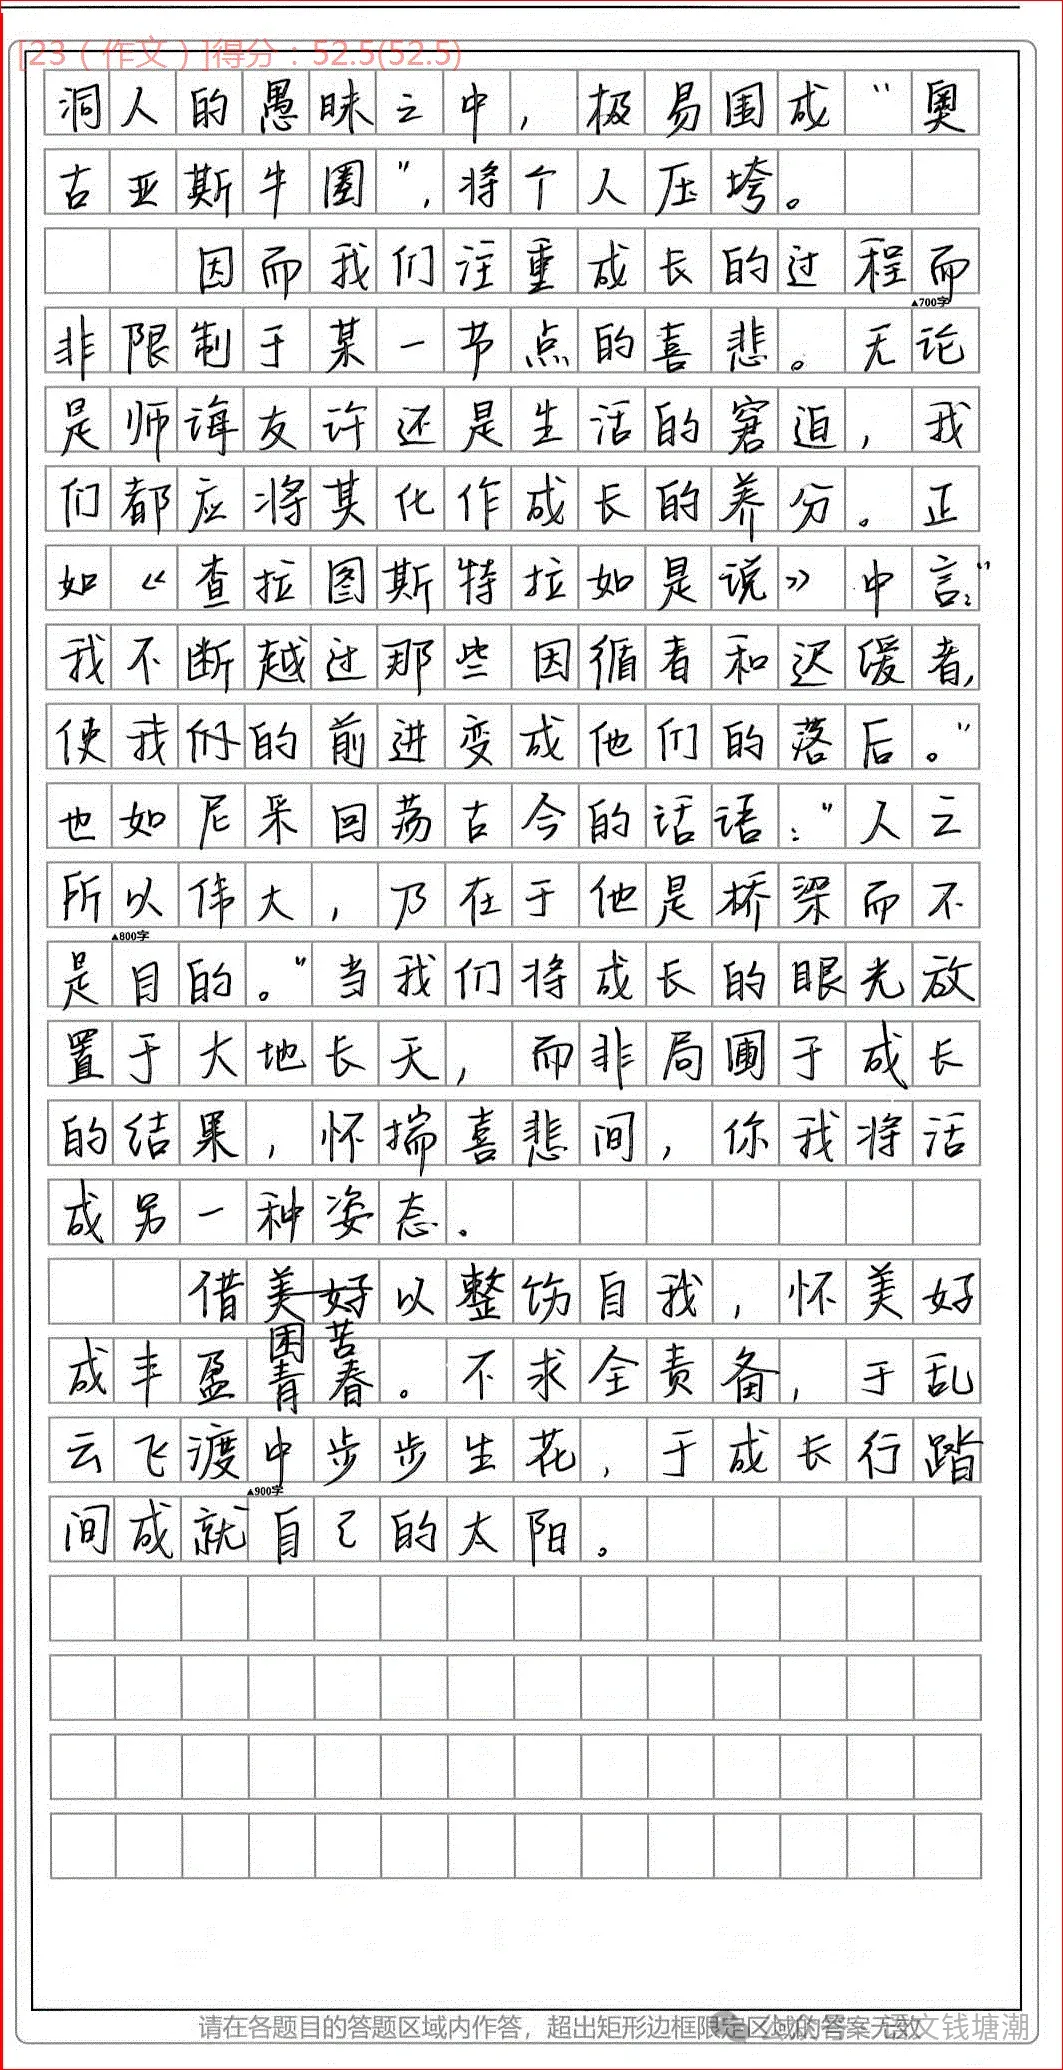 [23（作文）]得分：52.5(52.5)
洞人的愚昧之中，极易围成“奥
古亚斯牛圈”，将个人压垮。
因而我们注重成长的过程而
▲700字
非限制于某一节点的喜悲。无论
是师诲友许还是生活的窘迫，我
们都应将其化作成长的养分。正
如《查拉图斯特拉如是说》中言：“
我不断越过那些因循者和迟缓者，
使我们的前进变成他们的落后。”
也如尼采回荡古今的话语：“人之
所以伟大，乃在于他是桥梁而不
▲800字
是目的。”当我们将成长的眼光放
置于大地长天，而非局圃于成长
的结果，怀揣喜悲间，你我将活
成另一种姿态。
借美好以整饬自我，怀美好
困苦
成丰盈青春。不求全责备，于乱
云飞渡中步步生花，于成长行踏
▲900字
间成就自己的太阳。
请在各题目的答题区域内作答，超出矩形边框限定区域的答案无效
语文钱塘潮